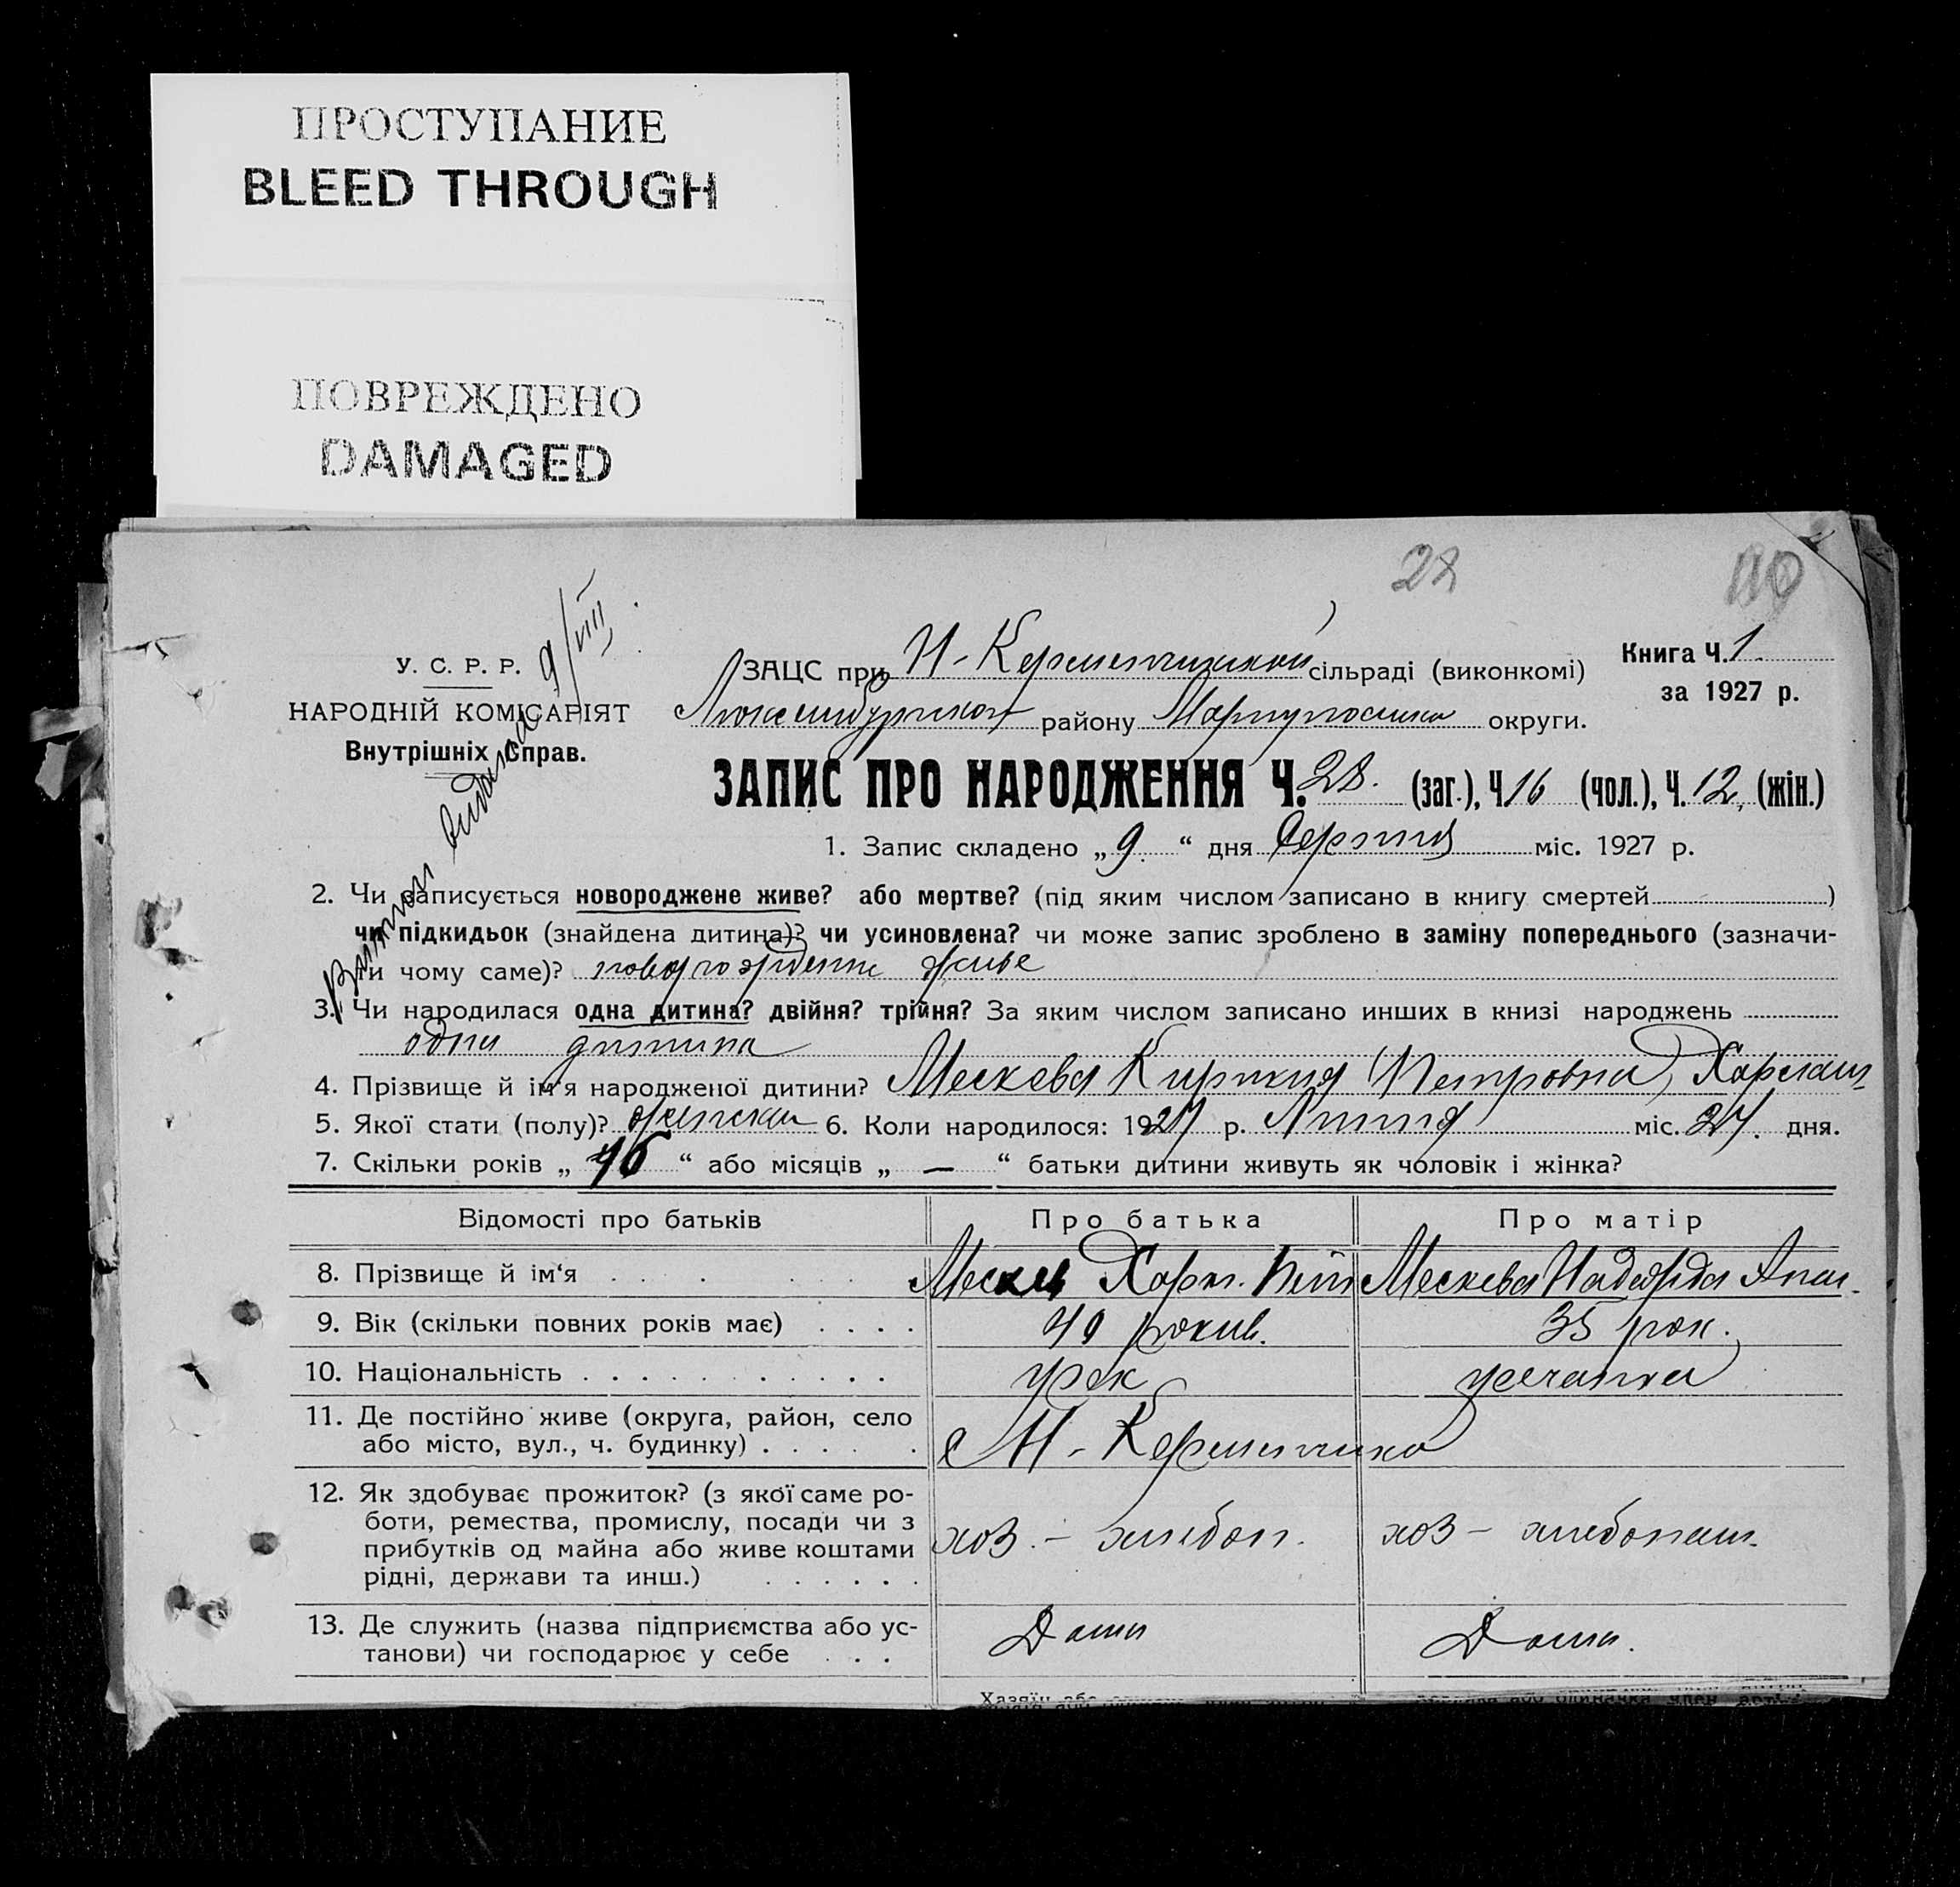 ПРОСТУПАНИЕ
BLEED THROUGH
ПОВРЕЖДЕНО
DAMAGED
28
У. С. Р. Р.
НАРОДНІЙ КОМІСАРІЯТ
Внутрішніх Справ.
видана 9/VIII
ЗАЦС при Н-Керменчицкой сільраді (виконкомі)
району Мариупольска округи.
Книга Ч. 1.
за 1927 р.
ЗАПИС ПРО НАРОДЖЕННЯ Ч. 28. (заг.), Ч. 16 (чол.), Ч. 12, (жін.)
1. Запис складено „ 9. “ дня Серпня міс. 1927 р.
2. Чи записується новороджене живе? або мертве? (під яким числом записано в книгу смертей )
чи підкидьок (знайдена дитина)? чи усиновлена? чи може запис зроблено в заміну попереднього (зазначи-
ти чому саме)? живе
3. Чи народилася одна дитина? двійня? трійня? За яким числом записано инших в книзі народжень
одна дитина
4. Прізвище й ім‘я народженої дитини? Мескева Петровна)
5. Якої стати (полу)? женска 6. Коли народилося: 1927 р. Липня міс. 27. дня.
7. Скільки років „ “ або місяців „ — “ батьки дитини живуть як чоловік і жінка?
Відомості про батьків
Про батька
Про матір
8. Прізвище й ім‘я
Харл. Пет
Мескева Надежда
9. Вік (скільки повних років має)
40 років.
35 рок.
10. Національність
грек
гречанка
11. Де постійно живе (округа, район, село
або місто, вул., ч. будинку)
с Н-Керменчик
12. Як здобуває прожиток? (з якої саме ро-
боти, ремества, промислу, посади чи з
прибутків од майна або живе коштами
рідні, держави та инш.)
хоз. - хлебоп.
хоз - хлебопаш.
13. Де служить (назва підприємства або ус-
танови) чи господарює у себе
Дома
Дома.